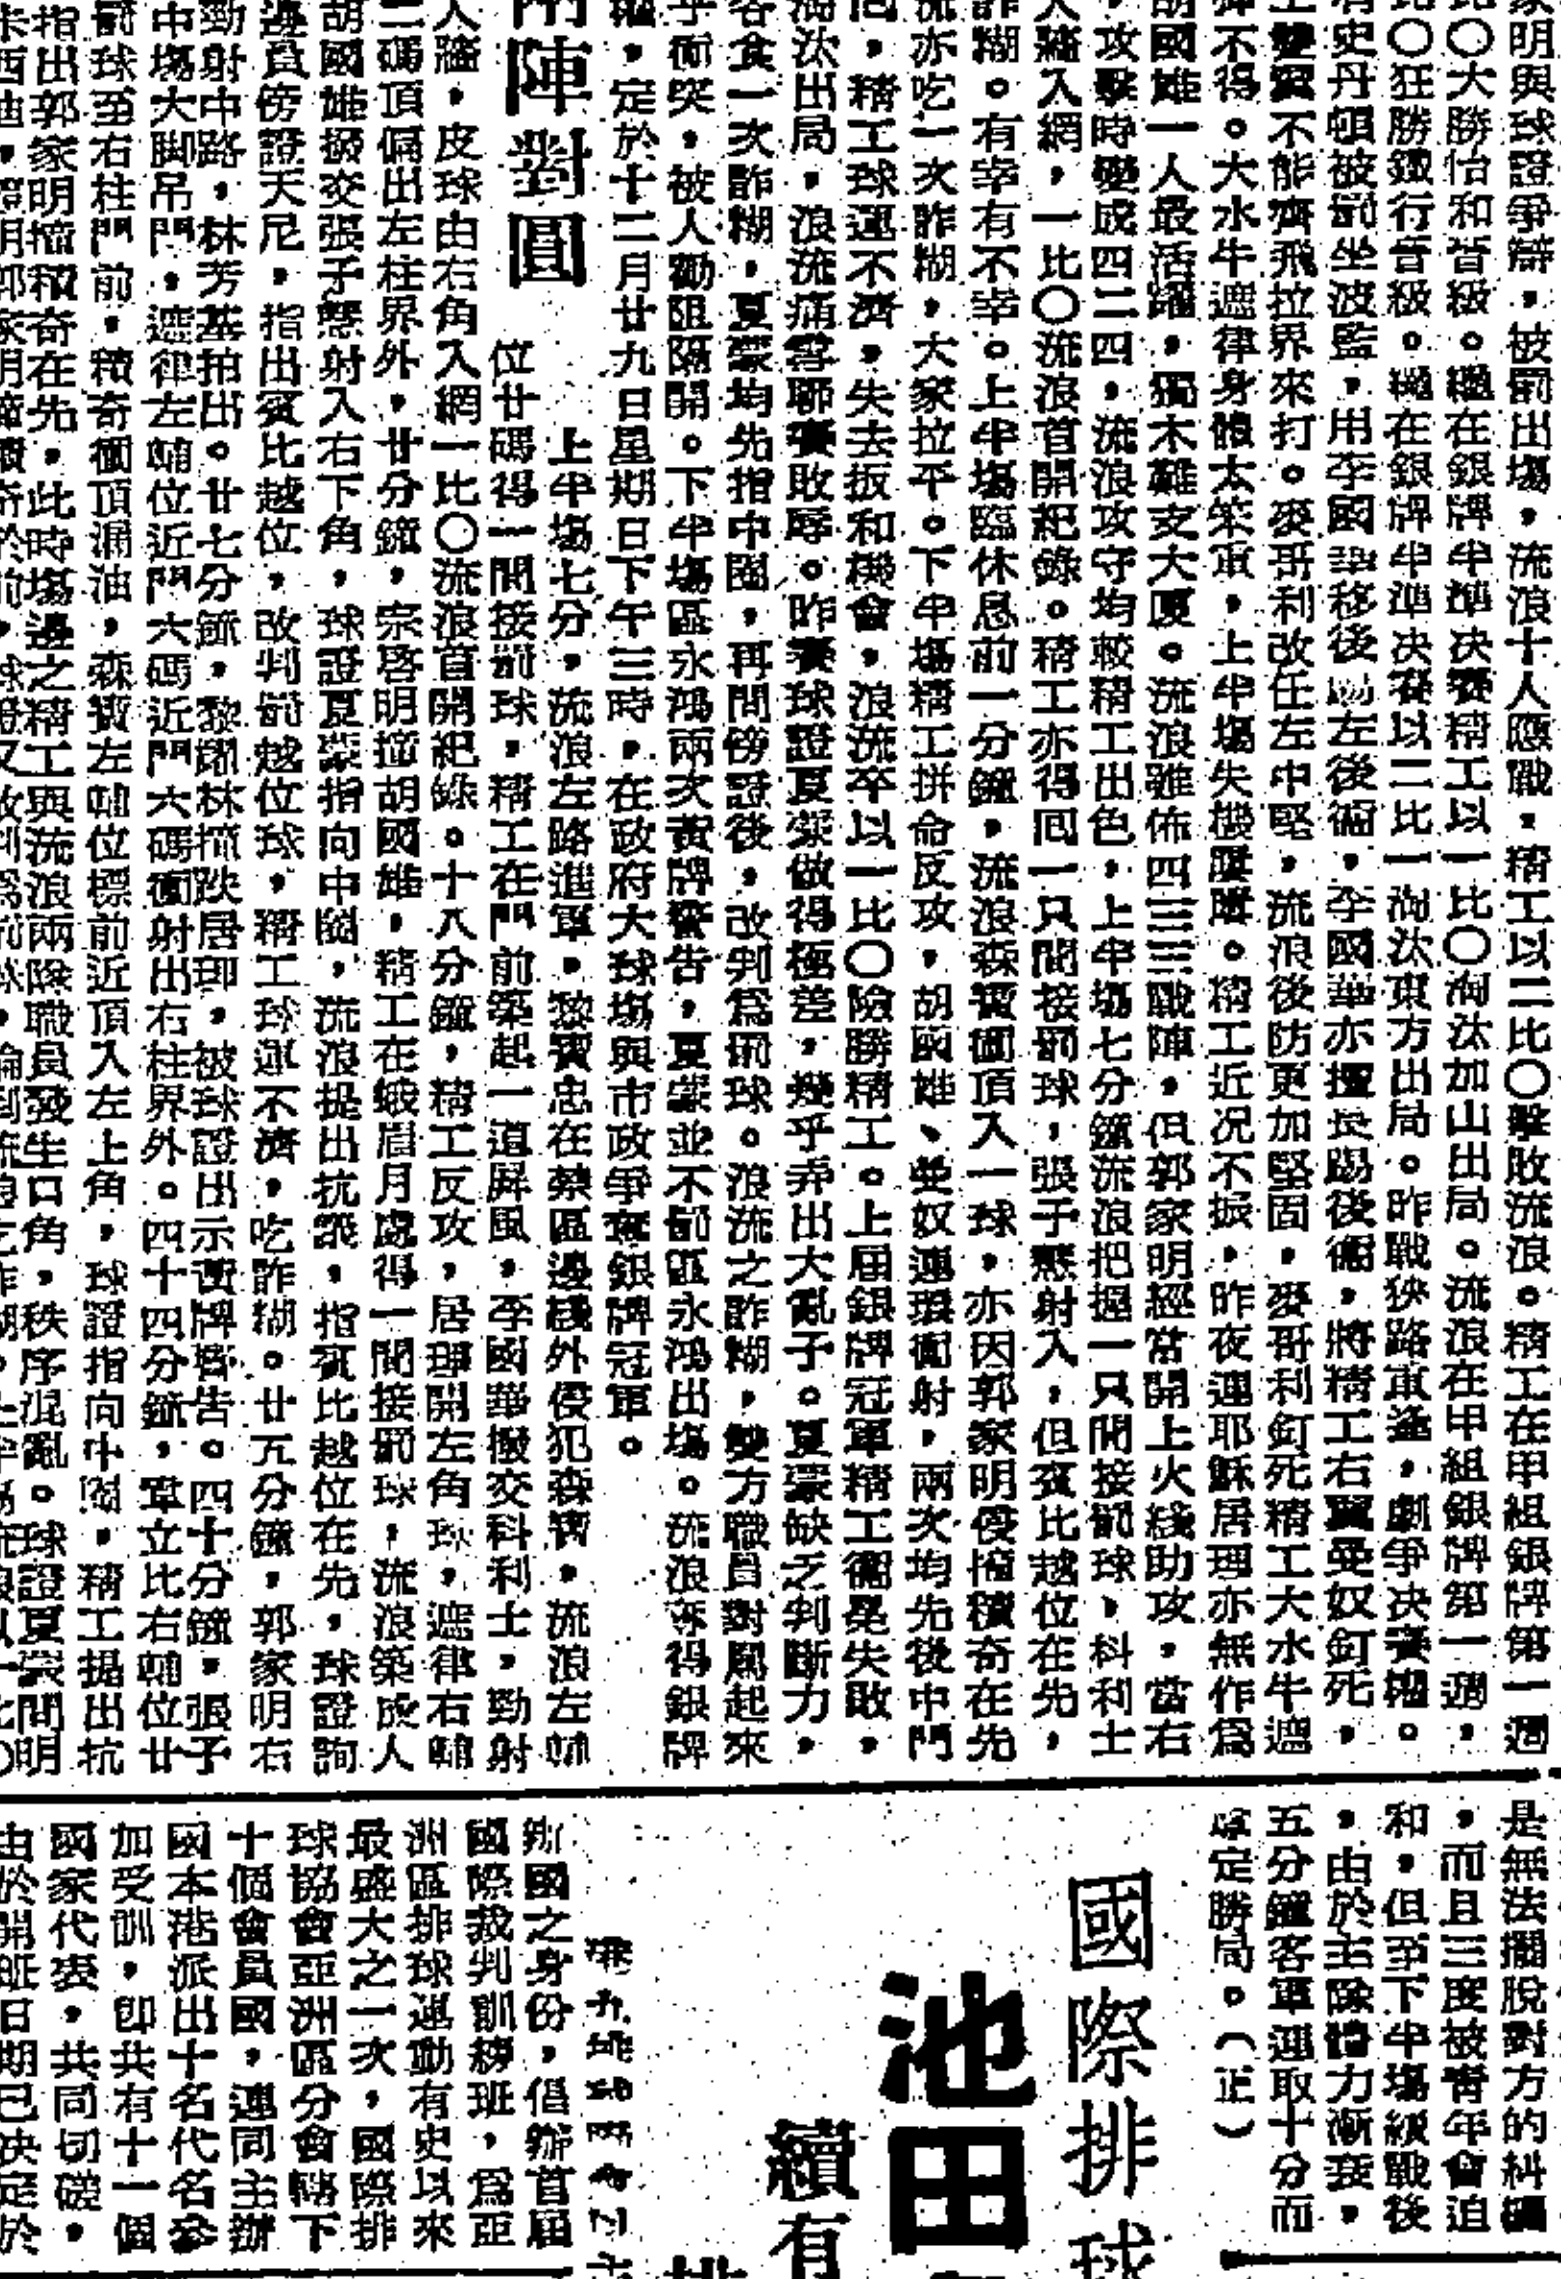 家明與球證爭辯，被罰出場，流浪十人應戰，精工以二比〇擊敗流浪。精工在甲組銀牌第一週
比〇大勝怡和晉級。繼在銀牌半準决賽精工以一比〇淘汰加山出局。流浪在甲組銀牌第一週，
比〇狂勝鐵行晉級。繼在銀牌半準决賽以二比一淘汰東方出局。昨戰狹路重逢，劇爭决賽權。
史丹頓被罰坐波監，用李國華移後踢左後衛，李國華亦擅長踢後衛，將精工右翼亞奴釘死，
上雙翼不能齊飛拉界來打。麥哥利改任左中堅，流浪後防更加堅固，麥哥利釘死精工大水牛遮
揮不得。大水牛遮律身體太笨重，上半場失機纍纍。精工近况不振，昨夜連耶穌居理亦無作爲
胡國雄一人最活躍，獨木難支大廈。流浪雖佈四三三戰陣，但郭家明經常開上火綫助攻，當右
，攻擊時變成四二四，流浪攻守均較精工出色，上半場七分鐘流浪把握一只間接罰球，科利士
入牆入網，一比〇流浪首開紀錄。精工亦得回一只間接罰球，張子慧射入，但賓比越位在先，
詐糊。有幸有不幸。上半場臨休息前一分鐘，流浪森寶個頂入一球，亦因郭家明侵撞積奇在先
流亦吃一次詐糊，大家拉平。下半場精工拼命反攻，胡國雄、亞奴連環衝射，兩次均先後中門
，精工球運不濟，失去扳和機會，浪流卒以一比〇險勝精工。上届銀牌冠軍精工衛冕失敗，
淘汰出局，浪流痛雪聯賽敗辱。昨賽球證夏蒙做得極差，幾乎弄出大亂子。夏蒙缺乏判斷力，
各食一次詐糊，夏蒙均先指中圈，再問傍證後，改判爲罰球。浪流之詐糊，雙方職員對罵起來
乎衝突，被人勸阻隔開。下半場區永鴻兩次黃牌警告，夏蒙並不罰區永鴻出場。流浪奪得銀牌
權，定於十二月廿九日星期日下午三時，在政府大球場與市政爭奪銀牌冠軍。
兩陣對圓
上半塲七分，流浪左路進軍，黎寶忠在禁區邊綫外侵犯森寶，流浪左輔
位廿碼得一間接罰球，精工在門前築起一道屛風，李國華搬交科利士，勁射
人牆，皮球由右角入網一比〇流浪首開紀錄。十八分鐘，精工反攻，居理開左角球，遮律右輔
二碼頂偏出左柱界外，廿分鐘，宗啓明撞胡國雄，精工在蛾眉月處得一間接罰球，流浪築成人
胡國雄搬交張子慧射入右下角，球證夏蒙指向中圈，流浪提出抗議，指賓比越位在先，球證詢
邊員傍證天尼，指出賓比越位，改判罰越位球，精工球運不濟，吃詐糊。廿五分鐘，郭家明右
勁射中路，林芳基拍出。廿七分鐘，黎 林撞跌居理，被球證出示黃牌警告。四十分鐘，張子
中場大脚吊門，遮律左輔位近門六碼近門六碼衝射出右柱界外。四十四分鐘，章立比右輔位廿
罰球至右柱門前，積奇衝頂漏油，森寶左輔位標前近頂入左上角，球證指向中圈，精工提出抗
指出郭家明撞積奇在先。此時場邊之精工與流浪兩隊職員發生口角，秩序混亂。球證夏蒙問明
是無法擺脫對方的糾纏
，而且三度被靑年會迫
和，但至下半塲緩戰後
，由於主隊體力漸衰，
五分鐘客軍連取十分而
卓定勝局。（正）
國際排球
池田
續有
辦國之身份，倡辦首屆
國際裁判訓練班，爲亞
洲區排球運動有史以來
最盛大之一次，國際排
球協會亞洲區分會轄下
十個會員國，連同主辦
國本港派出十名代名參
加受訓，卽共有十一個
國家代表，共同切磋，
由於開班日期已决定於